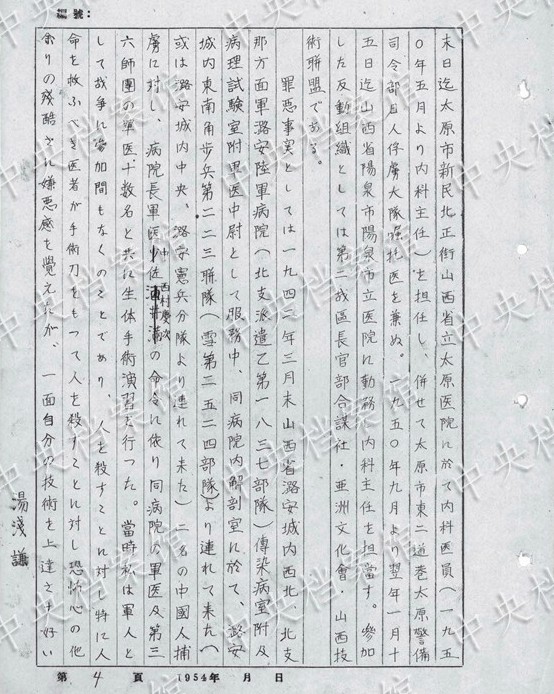 編號:
末日迄太原市新民北正街山西省立太原医院に於て内科医員(一九五
〇年五月より内科主任)を担任し、併せて太原市東二道巷太原警備
司令部日人俘虜大隊 医を兼ぬ。一九五〇年九月より翌年一月十
五日迄山西省陽泉市陽泉市立医院に勤務、内科主任を担当す。参加
した反動組織としては第二戦区長官部合謀社・亜洲文化會・山西技
術聯盟である。
罪悪事実としては一九四二年三月末山西省潞安城内西北、北支
那方面軍潞安陸軍病院(北支派遣乙第一八三七部隊)傳染病室附及
病理試験室附軍医中尉として服務中、同病院内解剖室に於て、潞安
城内東南角歩兵第二二三聯隊(雪第三五二四部隊)より連れて来た(
或は潞安城内中央、潞安憲兵分隊より連れて来た)二名の中國人捕
虜に対し、病院長軍医中佐西村慶次の命令に依り同病院の軍医及第三
六師團の軍医十数名と共に生体手術演習を行った。當時私は軍人と
して战争に参加間もなくのことであり、人を殺すことに対し特に人
命を救ふべき医者が手術刀をもつて人を殺すことに対し恐怖心の他
余りの残酷さに嫌悪感を覚えたが、一面自分の技術を上達さす好い
湯浅謙
第4頁 1954年 月 日
中央档案馆